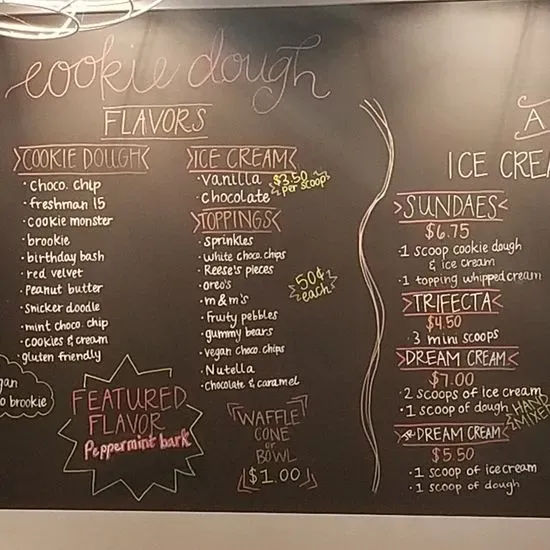 cookie dough
FLAVORS
COOKIE DOUGH
choco. chip
freshman 15
cookie monster
brookie
birthday bash
red velvet
Peanut butter
snicker doodle
mint choco. chip
cookies & cream
gluten friendly
o brookie
FEATURED
FLAVOR
Peppermint bark
ICE CREAM
vanilla
chocolate
$3.50
per scoop
TOPPINGS
sprinkles
white choco. chips
Reese's pieces
oreo's
m & m's
fruity pebbles
gummy bears
vegan choco. chips
Nutella
chocolate & caramel
50¢
each
WAFFLE
CONE
or
BOWL
$1.00
A
ICE CREA
SUNDAES
$6.75
1 scoop cookie dough
& ice cream
1 topping whipped cream
TRIFECTA
$4.50
3 mini scoops
DREAM CREAM
$7.00
2 scoops of ice cream
1 scoop of dough
HAND
MIXED
JR DREAM CREAM
$5.50
1 scoop of ice cream
1 scoop of dough